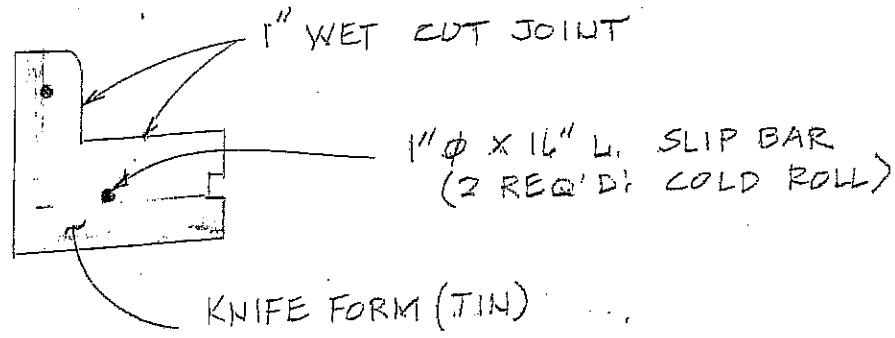 1" WET CUT JOINT
1" φ X 16" L. SLIP BAR
(2 REQ'D: COLD ROLL)
KNIFE FORM (TIN)